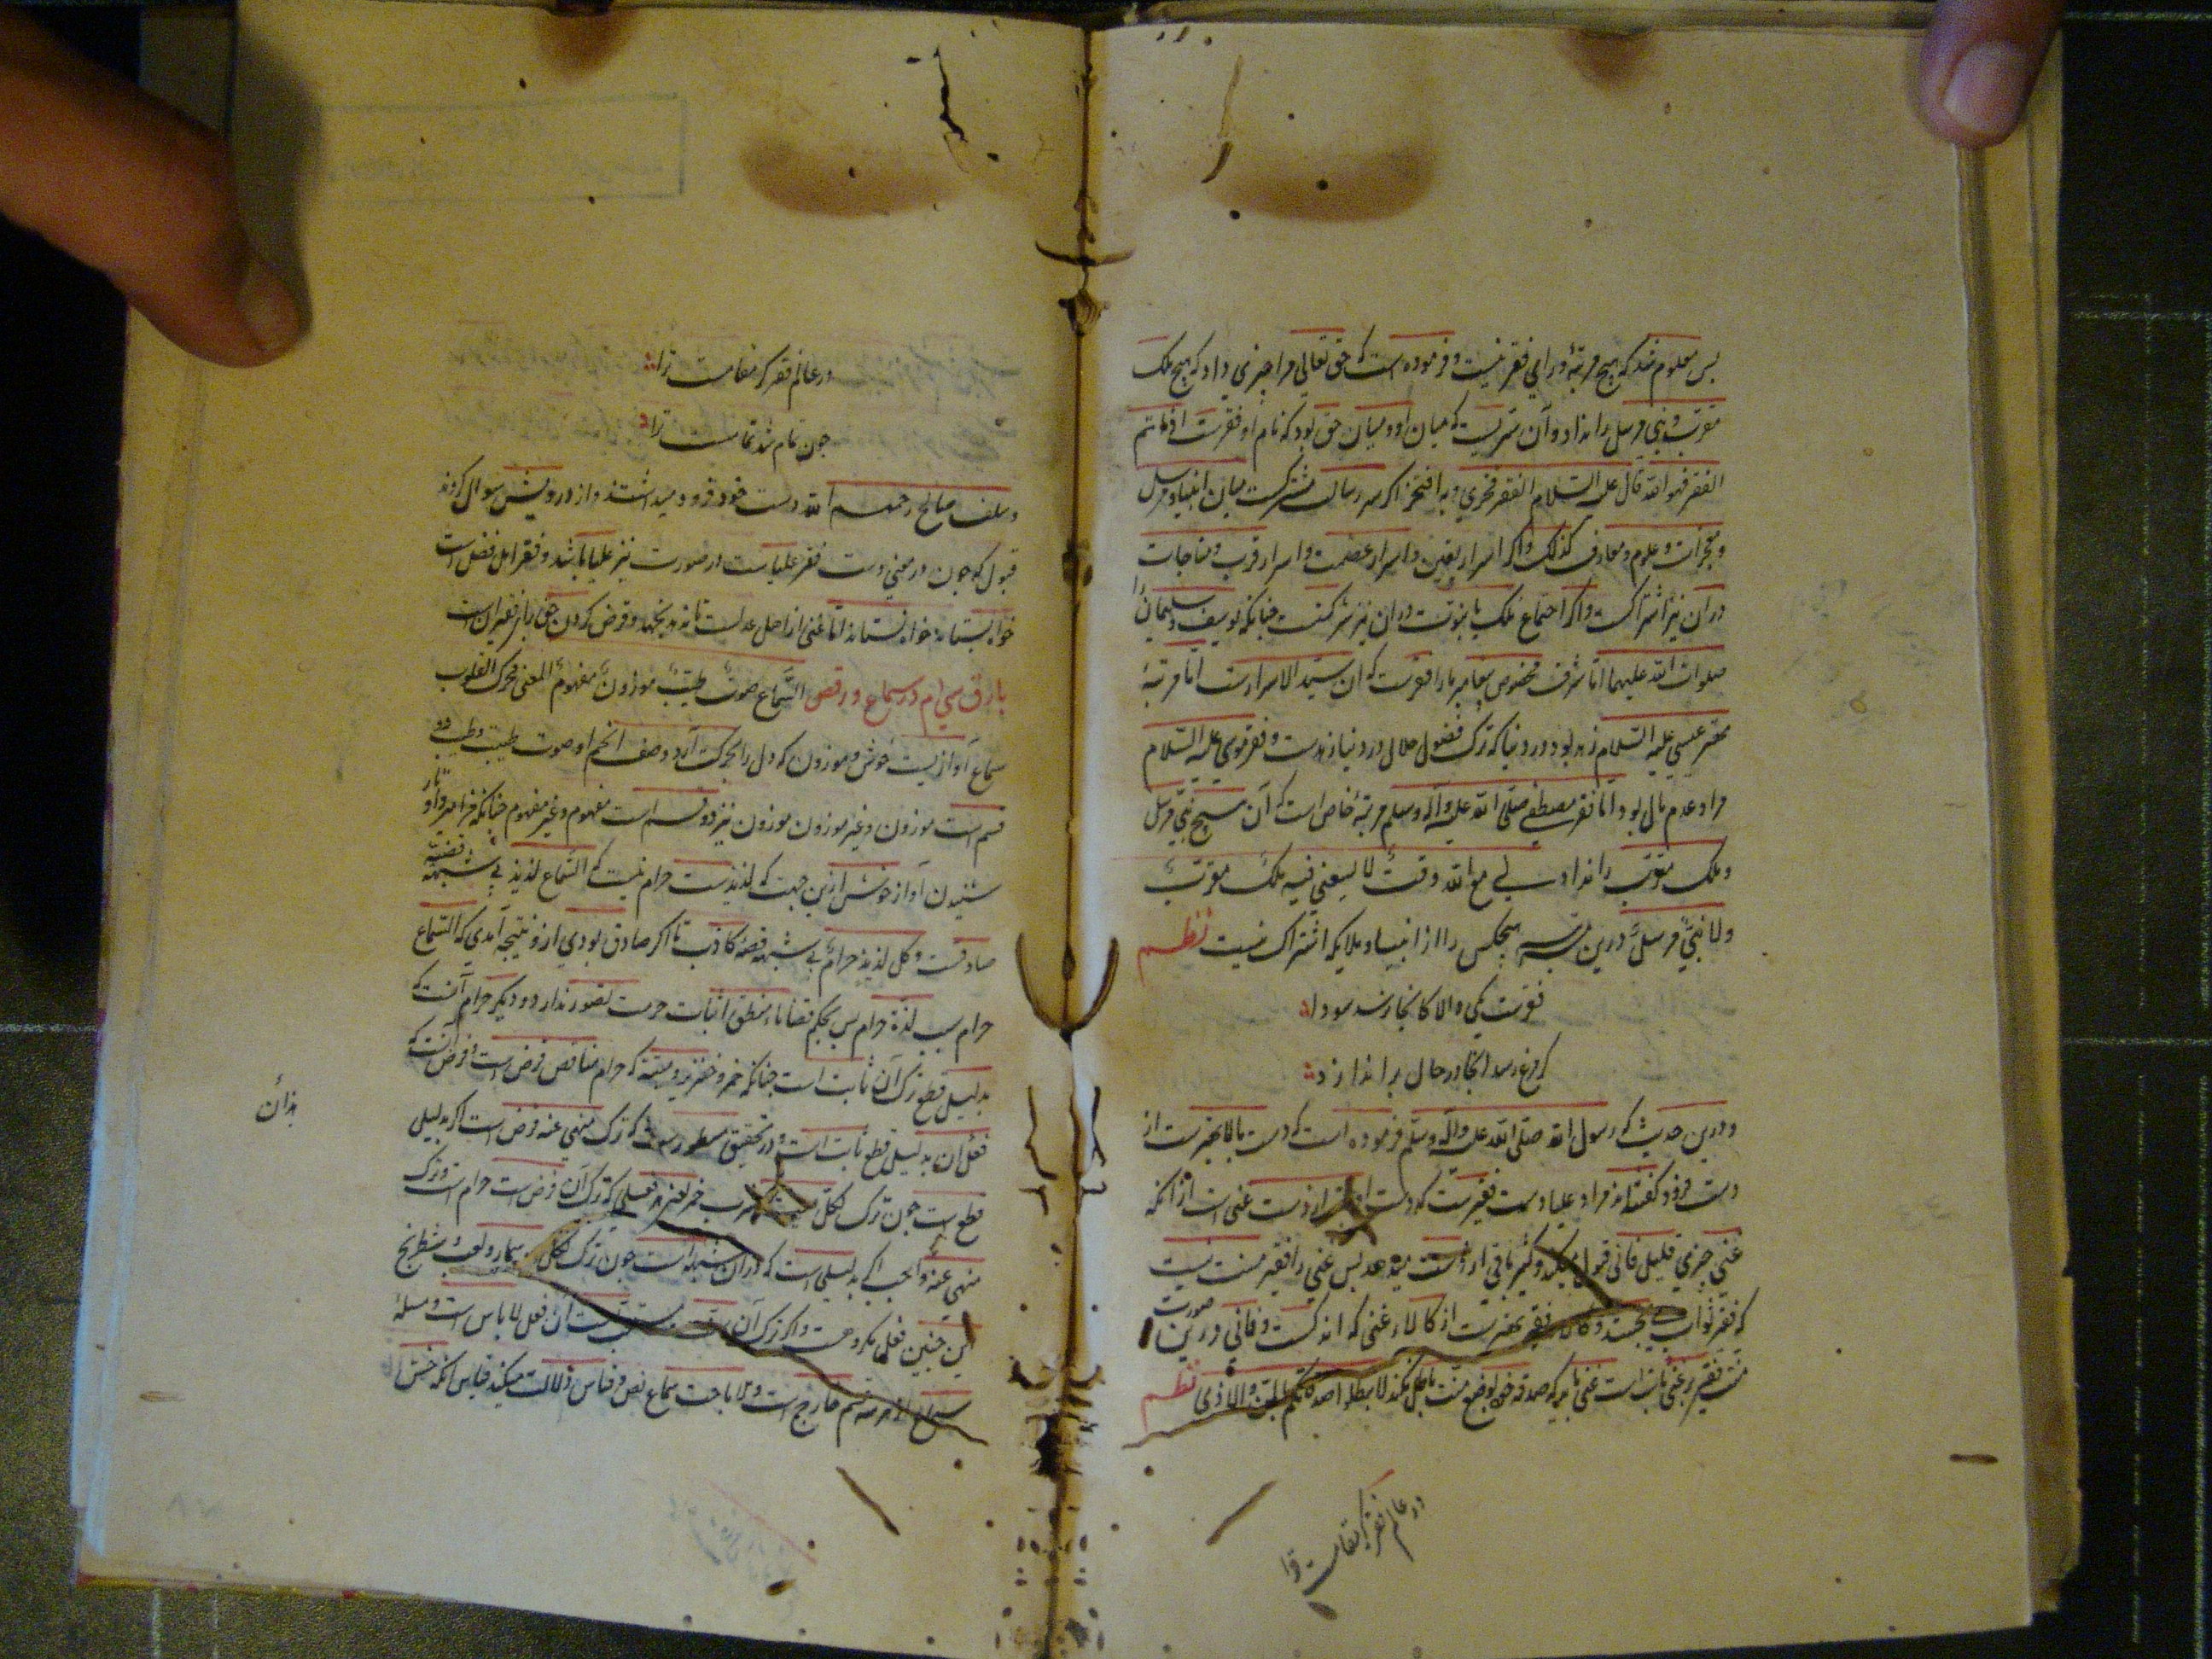 پس معلوم شد که هیچ مرتبهٔ ورای فقر نیست و فرموده است که حق تعالی مرا چیزی داد که هیچ ملک
مقرب و نبی مرسل را نداد و آن سریست که میان او و میان حق بود که نام او فقرست اذا تم
الفقر فهو الله قال علیه السلام الفقر فخری و به افتخر اگر سر رسالت مشترکست میان انبیاء مرسل
و معجزات و علوم و معارف کذلک و اگر اسرار یقین و اسرار عصمت و اسرار قرب و مناجات
دران نیز اشتراکست و اگر اجتماع ملک با نبوت دران نیز شرکتست چنانکه یوسف و سلیمان را
صلوات الله علیهما اما شرف مخصوص پیغامبر ما را فقرست که آن سید الاسرارست اما مرتبهٔ
مهتر عیسی علیه السلام زهد بود در دنیا که ترک فضول حلال در دنیا زهدست و فقر موسی علیه السلام
مراد عدم مال بود اما فقر مصطفی صلی الله علیه و آله وسلم مرتبهٔ خاص است که آن هیچ نبی مرسل
و ملک مقرب را نداد لی مع الله وقت لا یسعنی فیه ملک مقرب
ولا نبی مرسل درین مرتبه هیچکس را از انبیا و ملایکه اشتراک نیست نظم
فقرست یکی والا کانجا رسد سودا
کی مرغ رسد آنجا در حال پر اندازد
و درین حدیث که رسول الله صلی الله علیه و آله وسلم فرموده است که دست بالا بهترست از
دست فرود گفته‌اند مراد علیا دست فقیرست که دست از دست غنی است از آنکه
غنی چیزی قلیل فانی قبول میکند و کثیر باقی از دست میدهد پس غنی را فقیر منت نیست
که فقیر ثواب بخشد و کالاء فقیر بهترست از کالاء غنی که اندکست و فانی درین صورت
منت فقیر بر غنی ثابت است غنی باید که صدقه خود بوضع منت باطل نکند لا تبطلوا صدقاتکم بالمن والاذی نظم
در عالم فقر گر مقامست ترا
در عالم فقر گر مقامست ترا
چون تمام شد تمامست ترا
و سلف صالح رحمهم الله دست خود فرود میداشتند و از درویش سوال کردند
قبول که چون در معنی دست فقر علیاست در صورت نیز علیا باشد و فقر اهل فضل است
خواه بستاند خواه نستاند اما غنی از اهل عدلست تا نه بدیخها و قرض کردن حق بار فقیران است
بارق سی‌ام در سماع و رقص السماع صوت طیب موزون مفهوم المعنی محرک القلوب
سماع آوازیست خوش و موزون که دل را بحرکت آرد وصف اعم او صوت طیب و طیب دو
قسم است موزون و غیر موزون موزون نیز دو قسم است مفهوم و غیر مفهوم چنانکه مزامیر و اوتار
شنیدن آواز خوش ازین جهت که لذیذست حرام نیست که السماع لذیذ بی شبهه قضیه
صادقست و کل لذیذ حرام بی شبهه قضیهٔ کاذب تا اگر صادق بودی ازو نتیجه آمدی که السماع
حرام بسبب لذة حرام پس بحکم قضایاء منطق اثبات حرمت تصور ندارد و دیگر حرام آنست که
بدلیل قطع ترک آن ثابت است چنانکه خمر و خنزیر و میته که حرام مناقض فرض است و فرض آنست که
فعل آن بدلیل قطع ثابت است و در تحقیق مسطورست که ترک منهی عنه فرض است اگر بدلیل
بدان
قطع است چون ترک اکل میته و شرب خمر یعنی هر فعلی که ترک آن فرض است حرام است و ترک
منهی عنه واجب اگر بدلیلی است که دران شبهه است چون ترک اکل و لعب شطرنج
این چنین فعل مکروهست و اگر ترک آن آن فعل لا باس است و مسلهٔ
سماع از هر سه قسم خارج است و بر اباحت سماع نص و قیاس دلالت میکند قیاس آنکه خنش